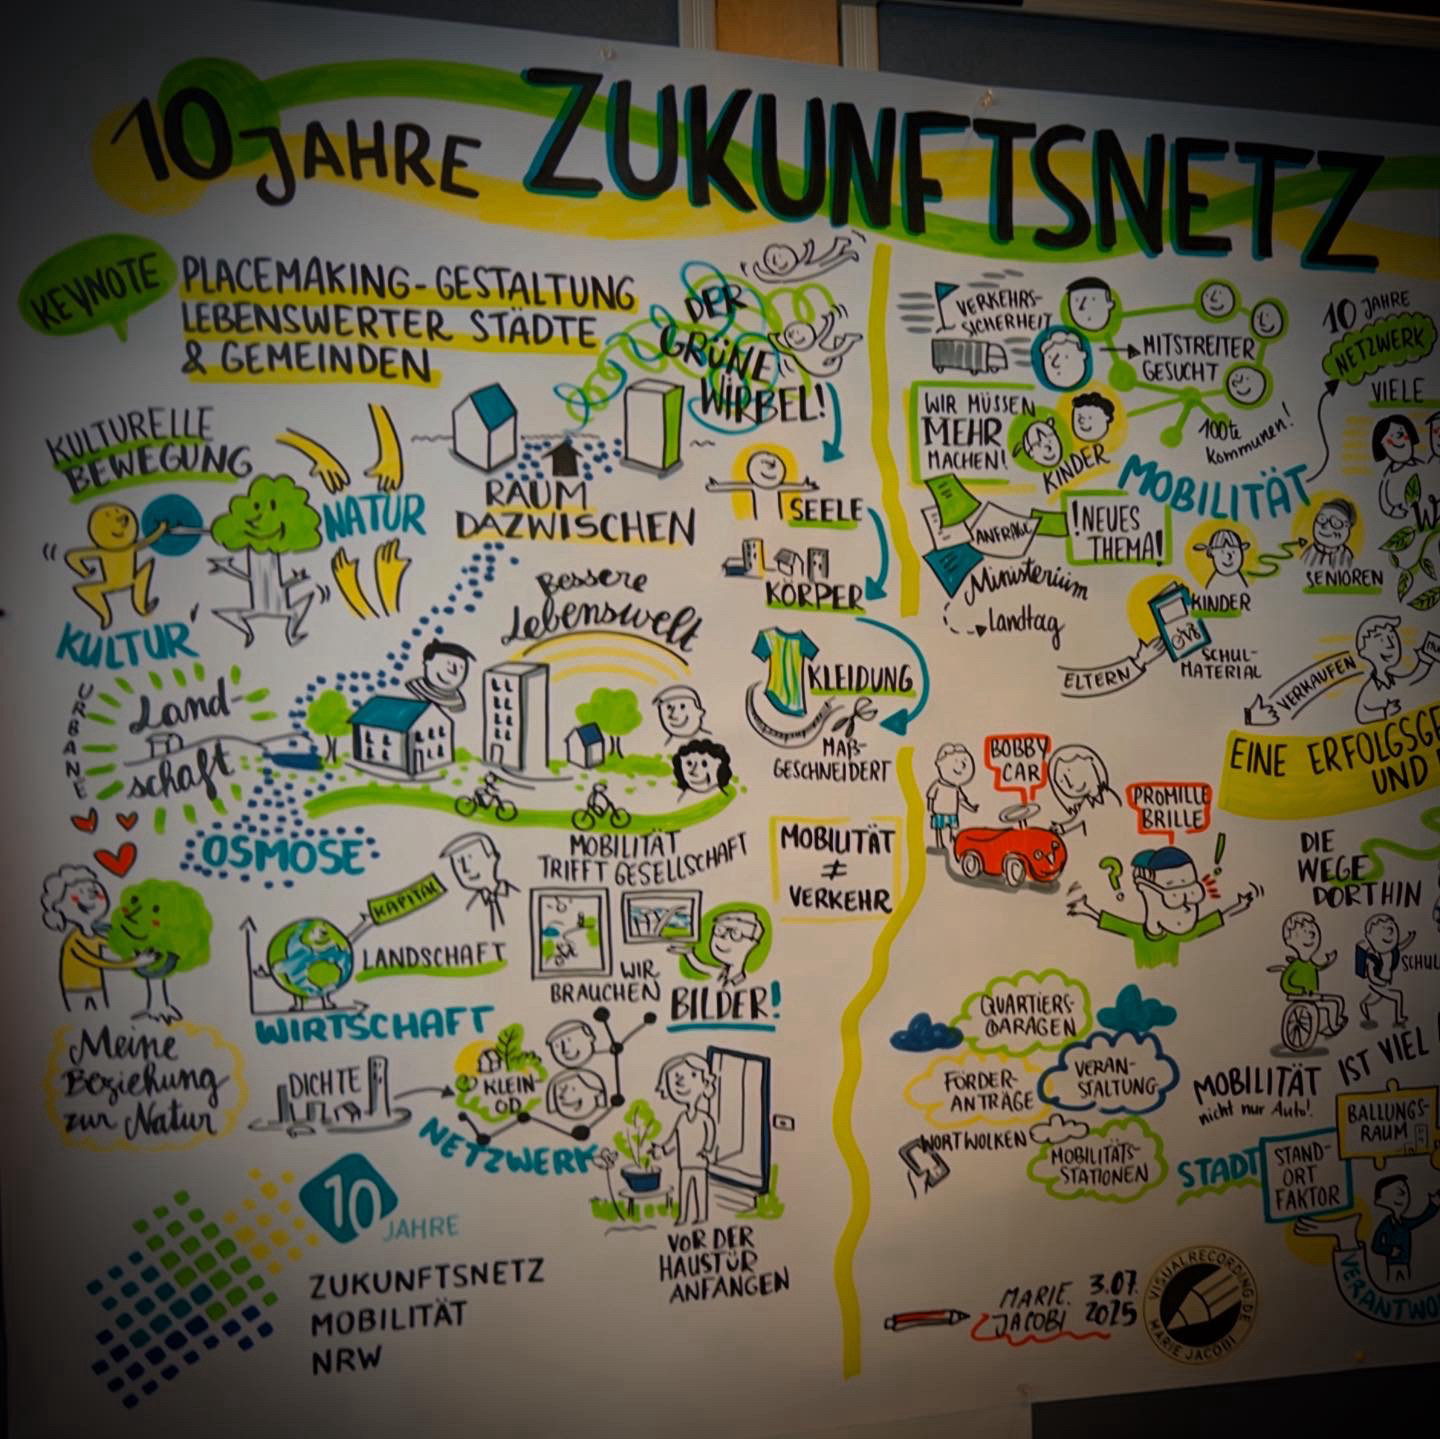 10 JAHRE ZUKUNFTSNETZ
KEYNOTE
PLACEMAKING-GESTALTUNG
LEBENSWERTER STÄDTE
& GEMEINDEN
DER
GRÜNE
WIRBEL!
KULTURELLE
BEWEGUNG
NATUR
KULTUR
RAUM
DAZWISCHEN
SEELE
KÖRPER
KLEIDUNG
MAẞ-
GESCHNEIDERT
Bessere
Lebenswelt
URBANE
Land-
schaft
OSMOSE
MOBILITÄT
TRIFFT GESELLSCHAFT
MOBILITÄT
≠
VERKEHR
KAPITAL
LANDSCHAFT
WIRTSCHAFT
WIR
BRAUCHEN
BILDER!
Meine
Beziehung
zur Natur
DICHTE
KLEIN-
OD
NETZWERK
VOR DER
HAUSTÜR
ANFANGEN
10
JAHRE
ZUKUNFTSNETZ
MOBILITÄT
NRW
VERKEHRS-
SICHERHEIT
MITSTREITER
GESUCHT
100te
Kommunen!
WIR MÜSSEN
MEHR
MACHEN!
KINDER
MOBILITÄT
10 JAHRE
NETZWERK
VIELE
ANFRAGE
!NEUES
THEMA!
Ministerium
Landtag
KINDER
SENIOREN
ELTERN
SCHUL-
MATERIAL
VERKAUFEN
EINE ERFOLGSGE
UND
BOBBY
CAR
PROMILLE
BRILLE
? !
DIE
WEGE
DORTHIN
SCHUL
IST VIEL
QUARTIERS-
GARAGEN
FÖRDER-
ANTRÄGE
VERAN-
STALTUNG
WORTWOLKEN
MOBILITÄTS-
STATIONEN
MOBILITÄT
nicht nur Auto!
STADT
STAND-
ORT
FAKTOR
BALLUNGS-
RAUM
VERANTWO
MARIE
JACOBI
3.07.
2025
VISUALRECORDING.DE
MARIE JACOBI